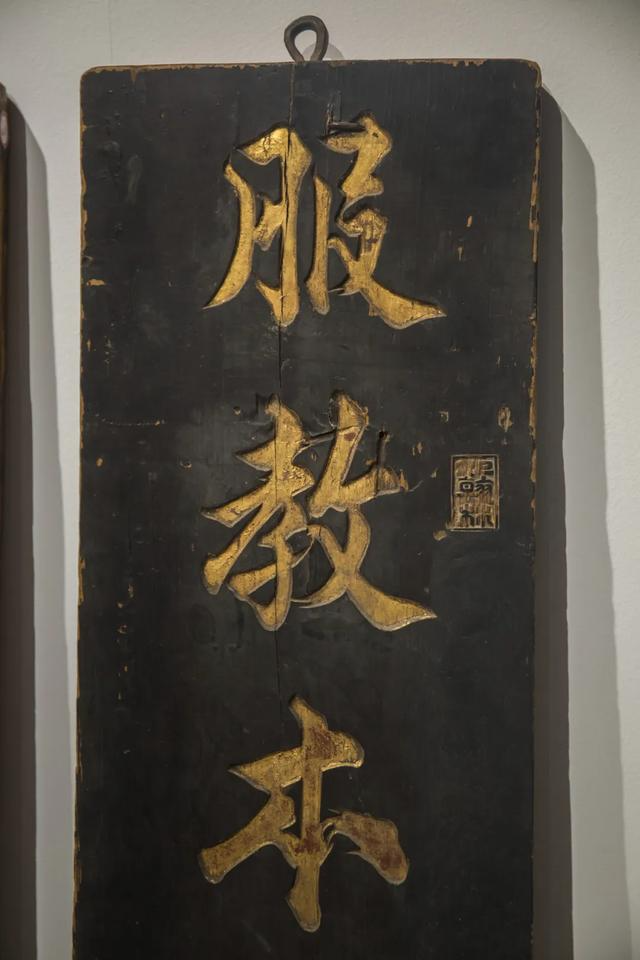 服教本